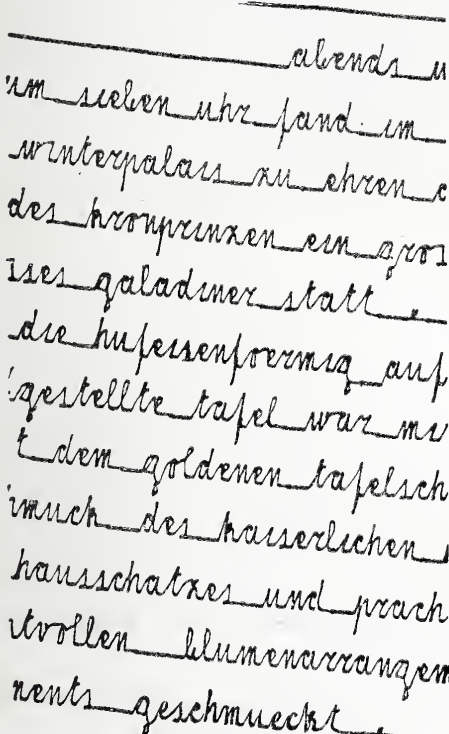 abends u
um sieben uhr fand im
winterpalais zu ehren d
des kronprinzen ein gros
sses galadiner statt .
die hufeisenfoermig auf
fgestellte tafel war mi
t dem goldenen tafelsch
hmuck des kaiserlichen
hausschatzes und prach
htvollen blumenarrangem
ments geschmueckt .